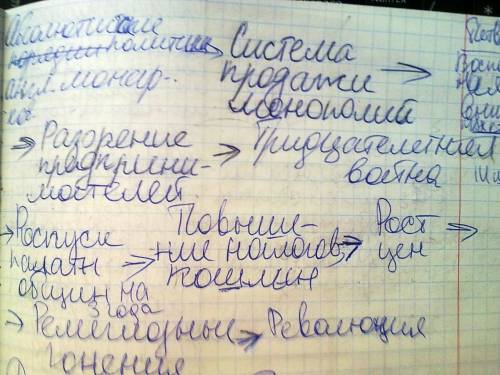 Абсолютистские
политика
англ. монар-
хов
→ Система
продажи
монополий →
→ Разорение
предприни-
мателей
→ Тридцателетняя
война
→ Роспуск
палаты
общин на
3 года
→ Повыше-
ние налогов,
пошлин
→ Рост
цен →
→ Религиозные
гонения
→ Революция